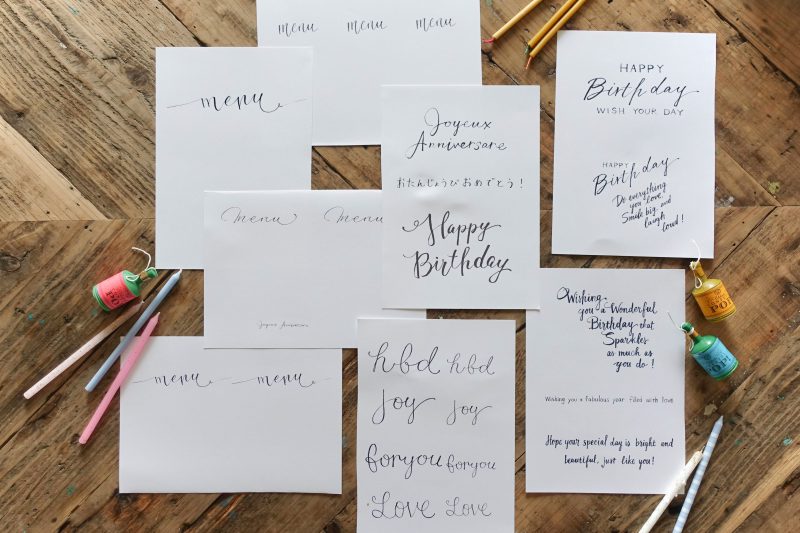 menu menu menu
menu
Joyeux
Anniversare
おたんじょうび おめでとう!
Happy
Birthday
HAPPY
Birthday
WISH YOUR DAY
HAPPY
Birthday
Do everything
you love,
Smile big and
laugh
loud!
Menu Menu
Joyeux Anniversaire
menu menu
hbd hbd
joy joy
foryou foryou
Love Love
Wishing
you a Wonderful
Birthday that
Sparkles
as much as
you do!
Wishing you a fabulous year filled with love
Hope your special day is bright and
beautiful, just like you!
POP
POP!
POP!